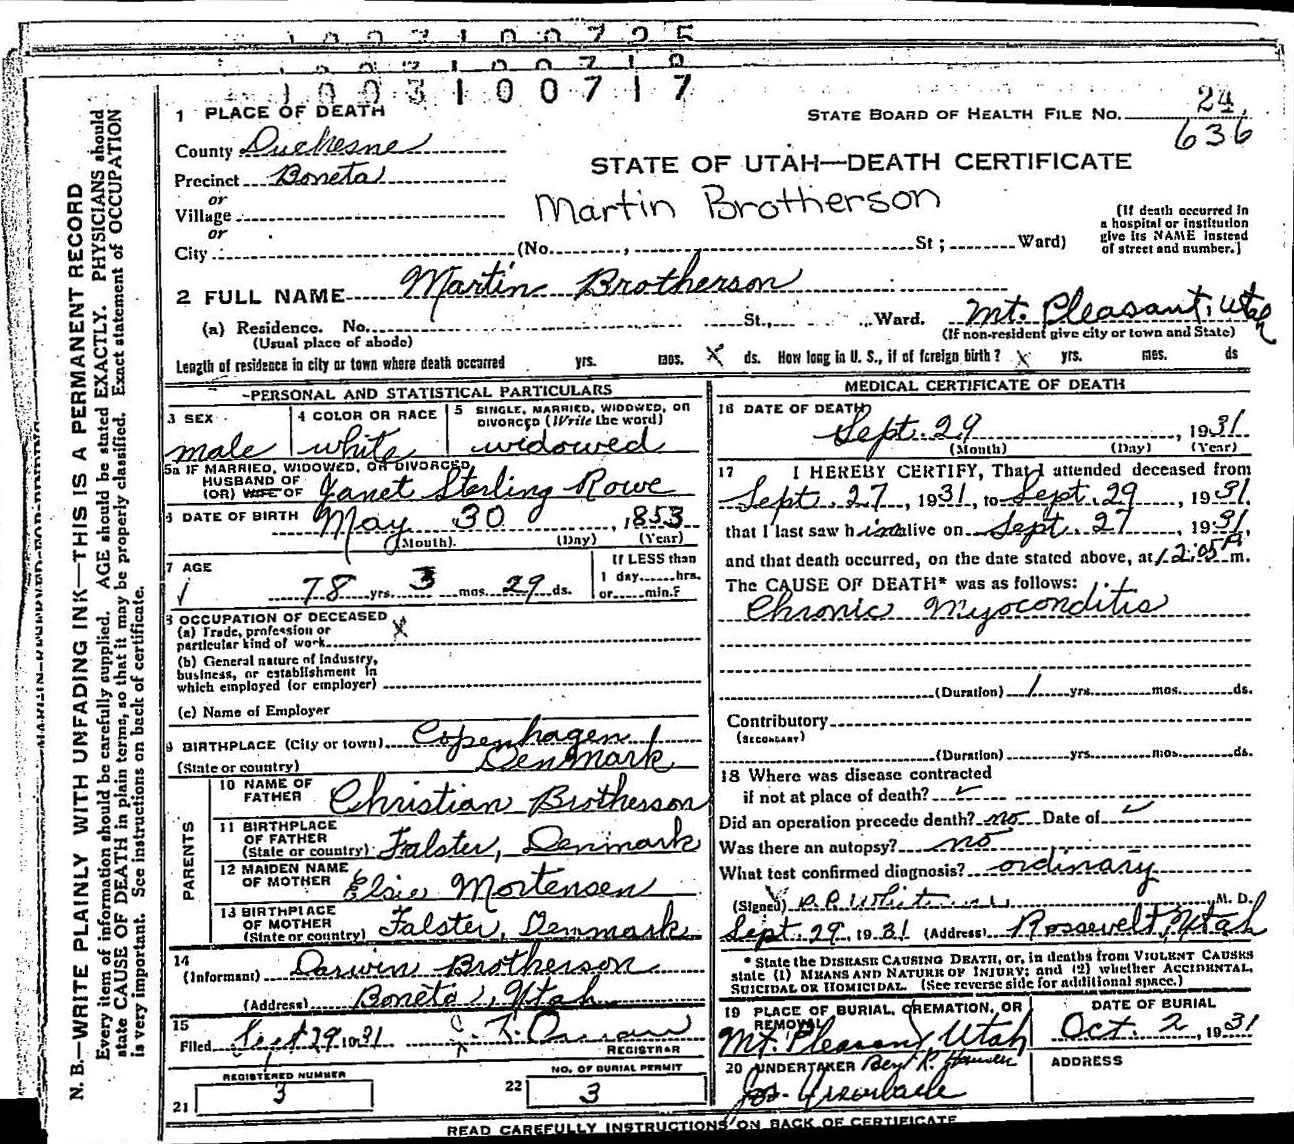 1003100725
1003100718
1003100717
1 PLACE OF DEATH
STATE BOARD OF HEALTH FILE NO. 24
636
County Duchesne
STATE OF UTAH—DEATH CERTIFICATE
Precinct Boneta
or
Village
Martin Brotherson
or
City (No. , St ; Ward)
(If death occurred in
a hospital or institution
give its NAME instead
of street and number.)
2 FULL NAME Martin Brotherson
(a) Residence. No. St., Ward. Mt. Pleasant, Utah
(Usual place of abode) (If non-resident give city or town and State)
Length of residence in city or town where death occurred yrs. mos. X ds. How long in U. S., if of foreign birth? X yrs. mos. ds
PERSONAL AND STATISTICAL PARTICULARS
3 SEX
male
4 COLOR OR RACE
white
5 SINGLE, MARRIED, WIDOWED, OR
DIVORCED (Write the word)
widowed
5a IF MARRIED, WIDOWED, OR DIVORCED
HUSBAND OF
(OR) WIFE OF Janet Sterling Rowe
6 DATE OF BIRTH May 30, 1853
(Month) (Day) (Year)
7 AGE
78 yrs. 3 mos. 29 ds.
If LESS than
1 day......hrs.
or......min.?
8 OCCUPATION OF DECEASED
(a) Trade, profession or X
particular kind of work
(b) General nature of industry,
business, or establishment in
which employed (or employer)
(c) Name of Employer
9 BIRTHPLACE (City or town) Copenhagen
(State or country) Denmark
PARENTS
10 NAME OF
FATHER Christian Brotherson
11 BIRTHPLACE
OF FATHER
(State or country) Falster, Denmark
12 MAIDEN NAME
OF MOTHER Elsie Mortensen
13 BIRTHPLACE
OF MOTHER
(State or country) Falster, Denmark
14
(Informant) Darwin Brotherson
(Address) Boneta, Utah
15
Filed Sept 29 1931
REGISTRAR
REGISTERED NUMBER
21 3
NO. OF BURIAL PERMIT
22 3
MEDICAL CERTIFICATE OF DEATH
16 DATE OF DEATH
Sept. 29, 1931
(Month) (Day) (Year)
17 I HEREBY CERTIFY, That I attended deceased from
Sept. 27, 1931, to Sept. 29, 1931
that I last saw him alive on Sept. 27, 1931,
and that death occurred, on the date stated above, at 12:05 A m.
The CAUSE OF DEATH* was as follows:
Chronic Myoconditis
(Duration) 1 yrs. mos. ds.
Contributory
(SECONDARY)
(Duration) yrs. mos. ds.
18 Where was disease contracted
if not at place of death? ✓
Did an operation precede death? no Date of ✓
Was there an autopsy? no
What test confirmed diagnosis? ordinary
(Signed) M. D.
Sept. 29, 1931 (Address) Roosevelt, Utah
* State the DISEASE CAUSING DEATH, or, in deaths from VIOLENT CAUSES
state (1) MEANS AND NATURE OF INJURY; and (2) whether ACCIDENTAL,
SUICIDAL OR HOMICIDAL. (See reverse side for additional space.)
19 PLACE OF BURIAL, CREMATION, OR
REMOVAL
Mt. Pleasant, Utah
DATE OF BURIAL
Oct. 2, 1931
20 UNDERTAKER
ADDRESS
READ CAREFULLY INSTRUCTIONS ON BACK OF CERTIFICATE
N. B.—WRITE PLAINLY WITH UNFADING INK—THIS IS A PERMANENT RECORD
Every item of information should be carefully supplied. AGE should be stated EXACTLY. PHYSICIANS should
state CAUSE OF DEATH in plain terms, so that it may be properly classified. Exact statement of OCCUPATION
is very important. See instructions on back of certificate.